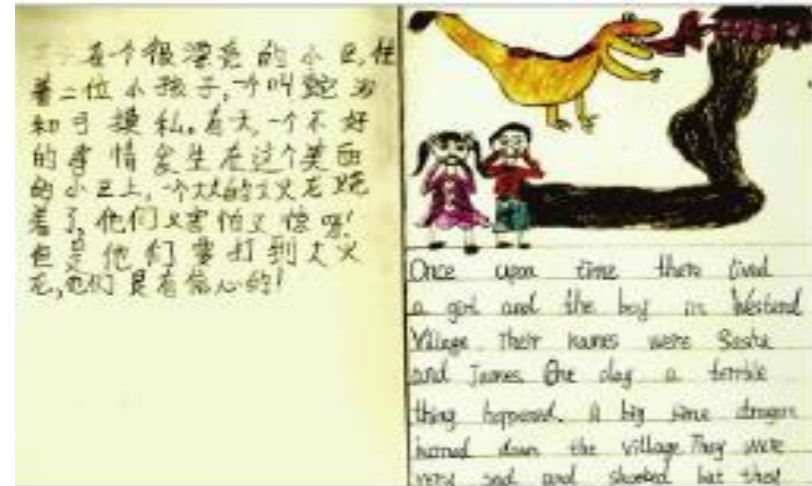 在个很漂亮的小 住
着二位小孩子,个叫
和 摸私。有天,一个不好
的事情发生在这个美丽
的小 上,一个大的 火龙
着了,他们又害怕又惊呀!
但是他们要打到大火
龙,他们是有信心的!
Once upon time there lived
a girl and the boy in Westend
Village. Their names were Sasha
and James. One day a terrible
thing happened. A big dragon
burned down the village. They were
very sad and shocked but they